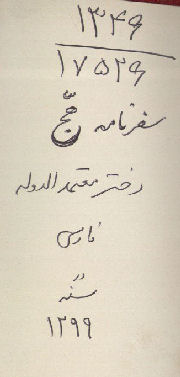 ۱۳۴۹
۱۷۵۲۹
سفرنامه حجّ
دختر معتمد الدوله
فارسی
در
سنه
۱۲۹۹